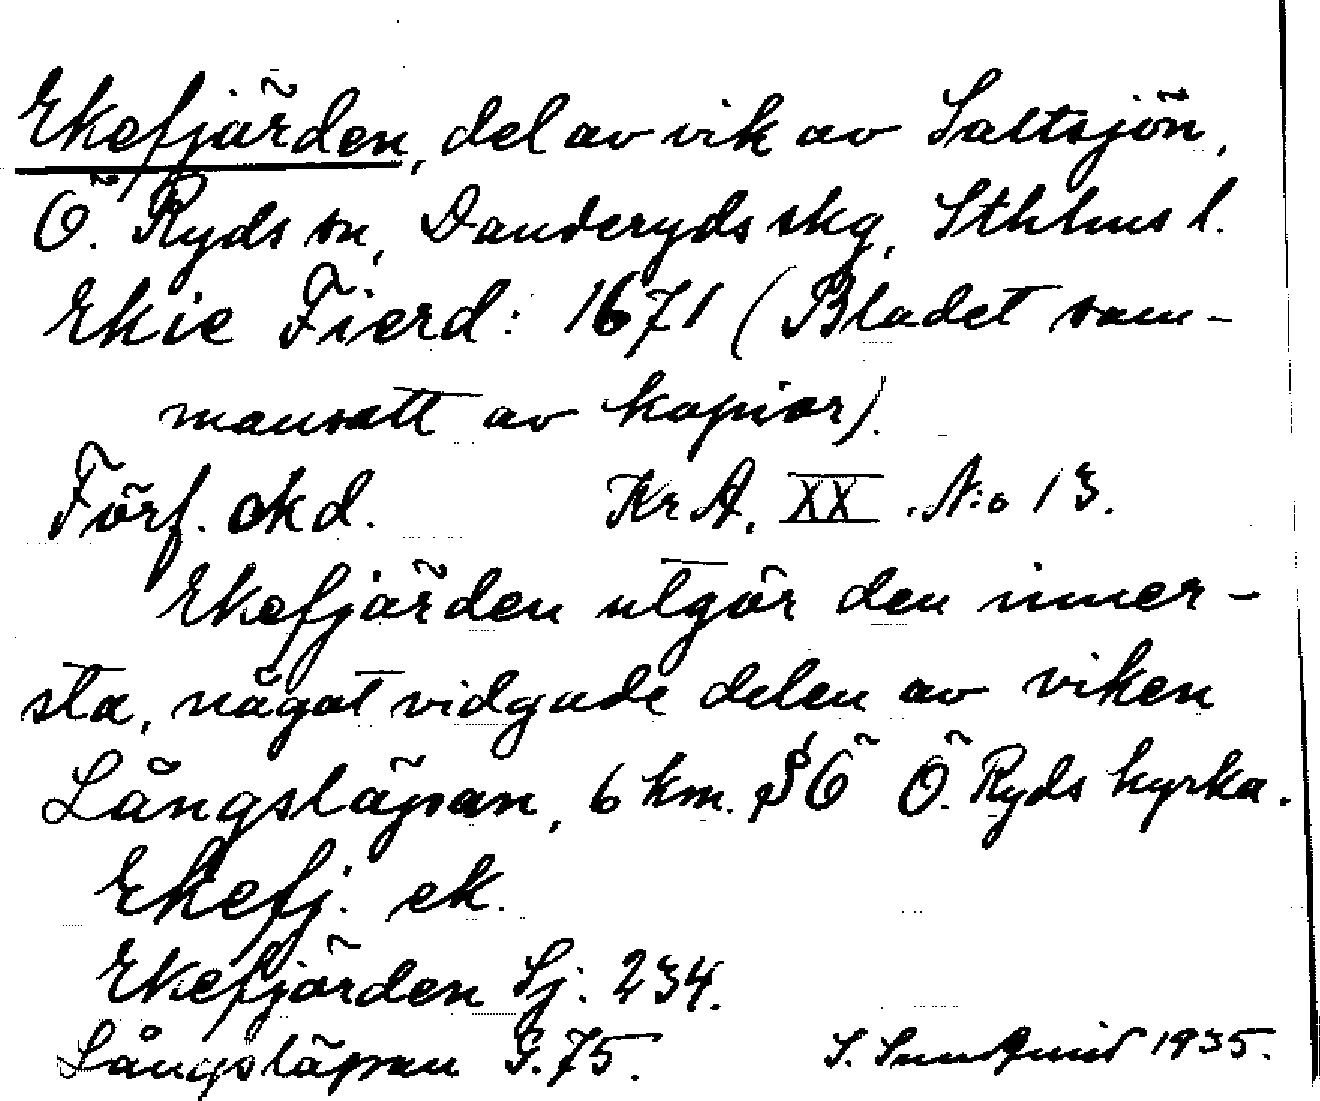 Ekefjärden, del av vik av Saltsjön,
Ö. Ryds sn, Danderyds skg, Sthlms l.
Ekie Fierd: 1671 (Bladet sam-
mansatt av kopior).
Förf. okd. Kr A. XX. N:o 13.
Ekefjärden utgör den inner-
sta, något vidgade delen av viken
Långsläpan, 6 km. SÖ Ö. Ryds kyrka.
Ekefj. ek.
Ekefjärden Sj. 234.
Långsläpan G. 75. S. Sundqvist 1935.